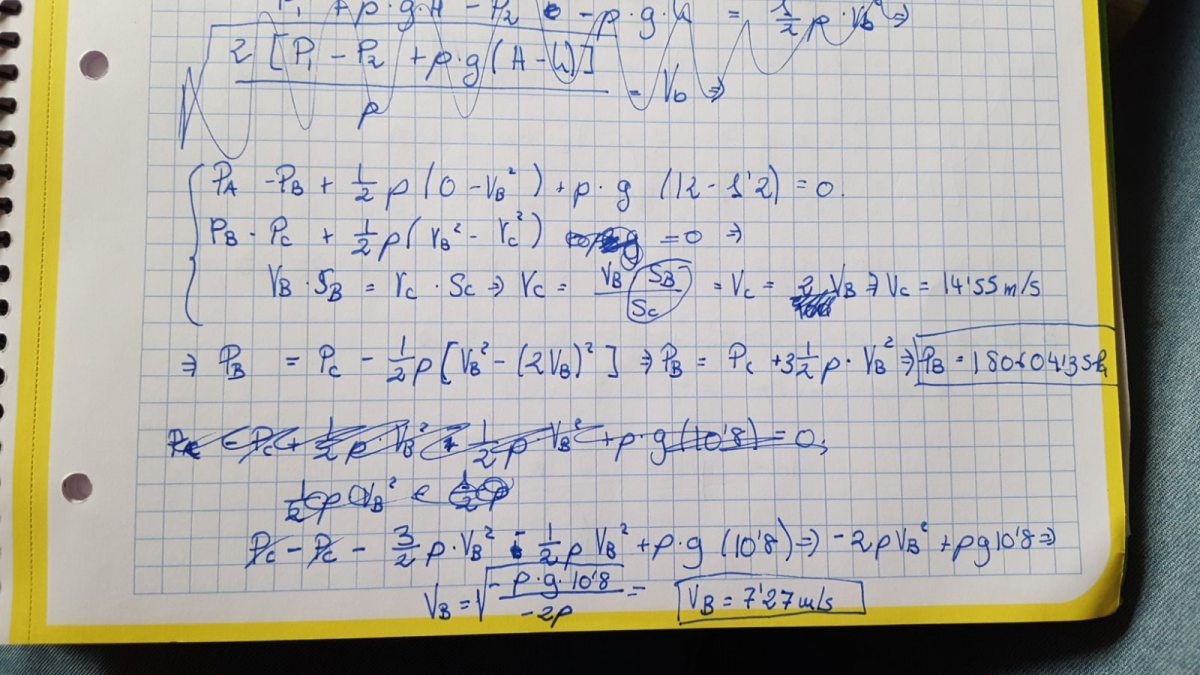 P₁ + p·g·H - P₂ - p·g·h = 1/2 p·Vb² ⇒
√(2[P₁ - P₂ + p·g(H-h)] / p) = Vb ⇒
PA - PB + 1/2 p(0 - VB²) + p·g (12 - 1'2) = 0.
PB - PC + 1/2 p(VB² - VC²) = 0 ⇒
VB·SB = VC·SC ⇒ VC = VB SB / SC = VC = 2 VB ⇒ VC = 14'55 m/s
⇒ PB = PC - 1/2 p[VB² - (2VB)²] ⇒ PB = PC + 3 1/2 p·VB² ⇒ PB =
PC + 1/2 p·VB² 1/2 p VB² + p·g(10'8) = 0;
1/2 p VB² 1/2 p
PC - PC - 3/2 p·VB² - 1/2 p VB² + p·g (10'8) ⇒ -2pVB² + pg10'8 ⇒
VB = √(-p·g·10'8 / -2p) = VB = 7'27 m/s